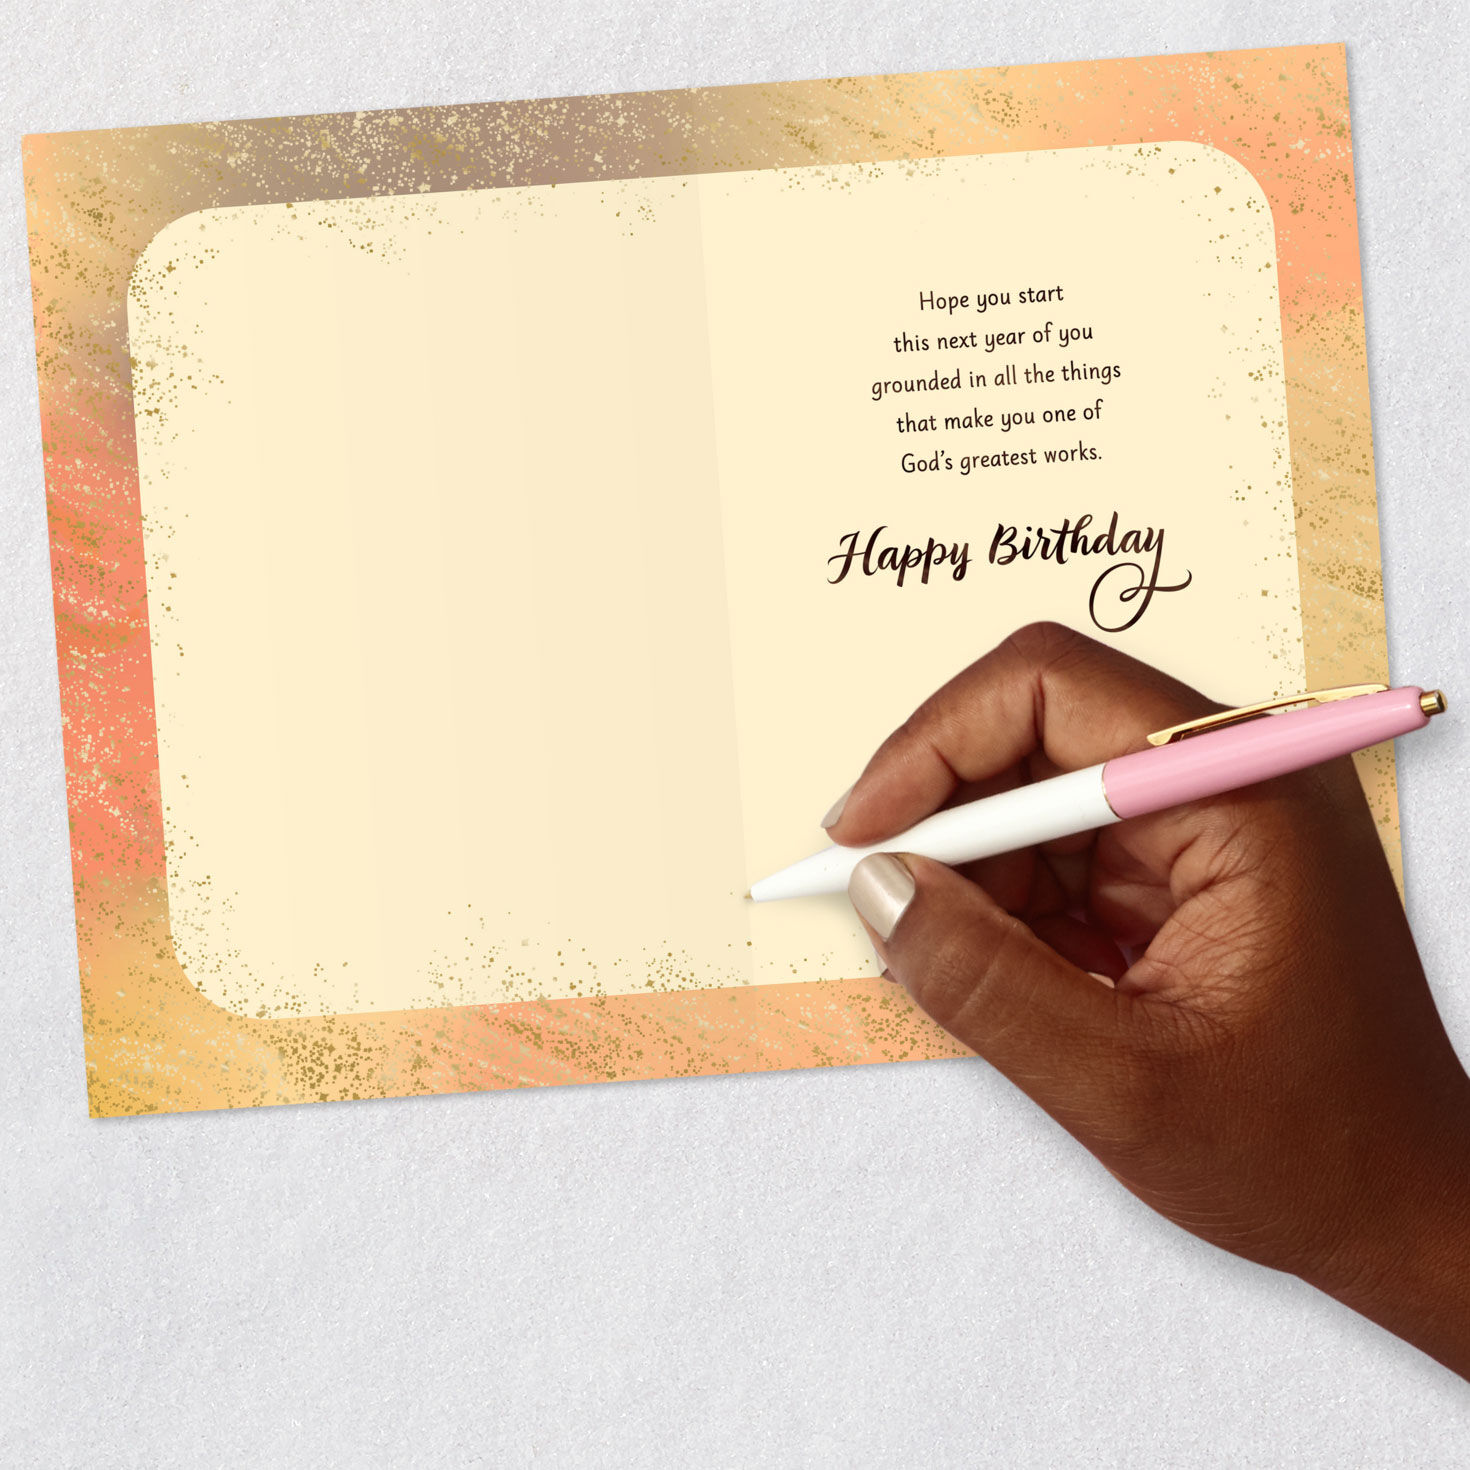 Hope you start
this next year of you
grounded in all the things
that make you one of
God's greatest works.
Happy Birthday